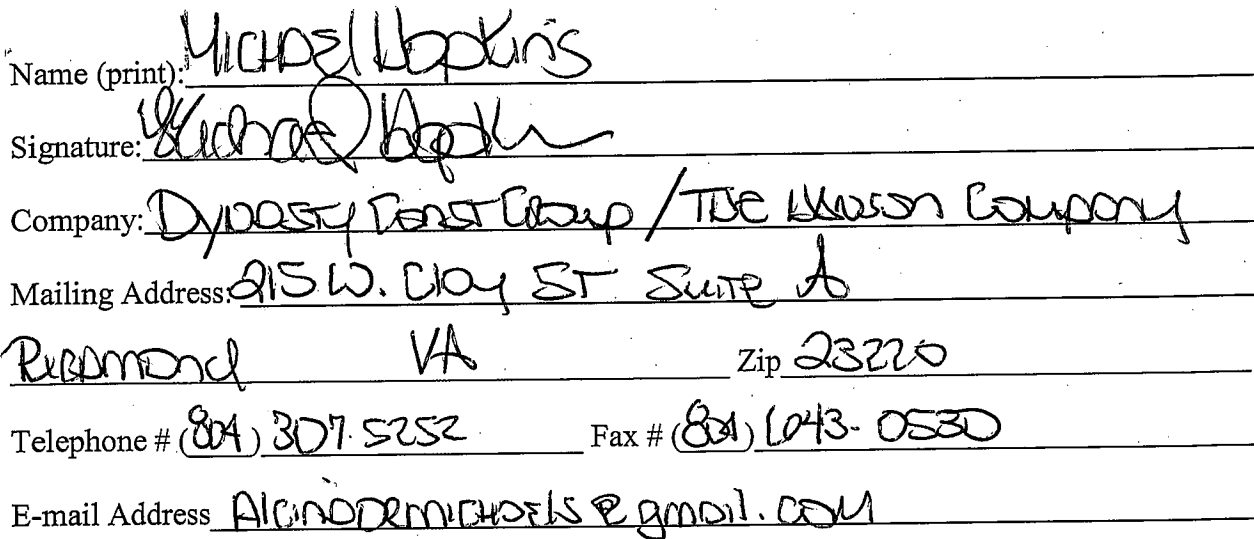 Name (print): Michael Hopkins
Signature: Michael Hopkins
Company: Dynasty Const Group / The Company
Mailing Address: 215 W. Clay ST Suite A
Richmond VA Zip 23220
Telephone # (804) 307-5252 Fax # (804) 643-0530
E-mail Address @gmail.com